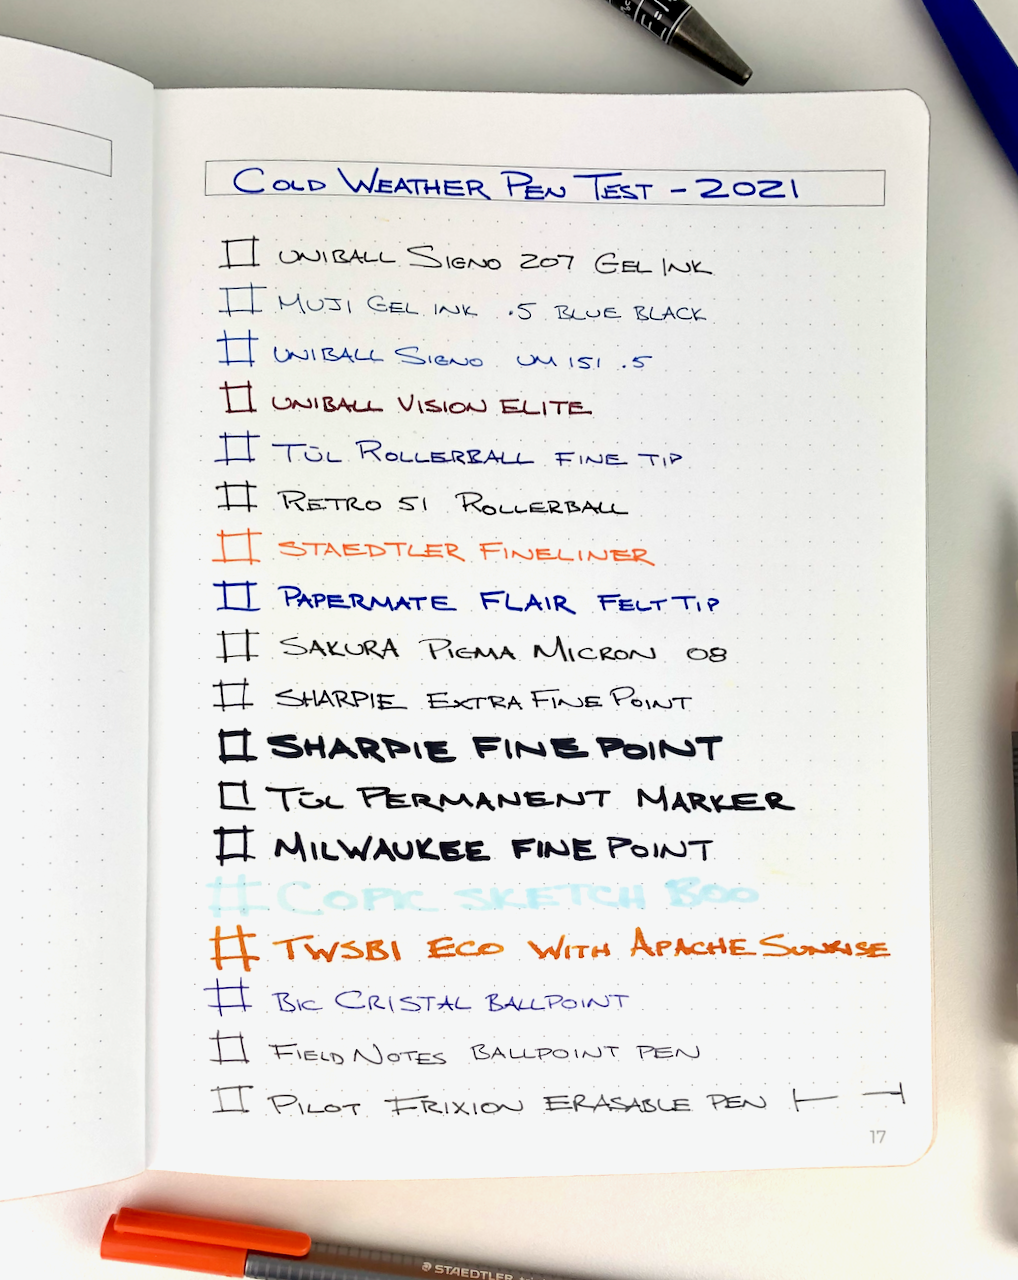 COLD WEATHER PEN TEST - 2021
UNIBALL SIGNO 207 GEL INK
MUJI GEL INK .5 BLUE BLACK
UNIBALL SIGNO UM 151 .5
UNIBALL VISION ELITE
TŪL ROLLERBALL FINE TIP
RETRO 51 ROLLERBALL
STAEDTLER FINELINER
PAPERMATE FLAIR FELT TIP
SAKURA PIGMA MICRON 08
SHARPIE EXTRA FINE POINT
SHARPIE FINE POINT
TŪL PERMANENT MARKER
MILWAUKEE FINE POINT
COPIC SKETCH B00
TWSBI ECO WITH APACHE SUNRISE
BIC CRISTAL BALLPOINT
FIELD NOTES BALLPOINT PEN
PILOT FRIXION ERASABLE PEN
17
STAEDTLER